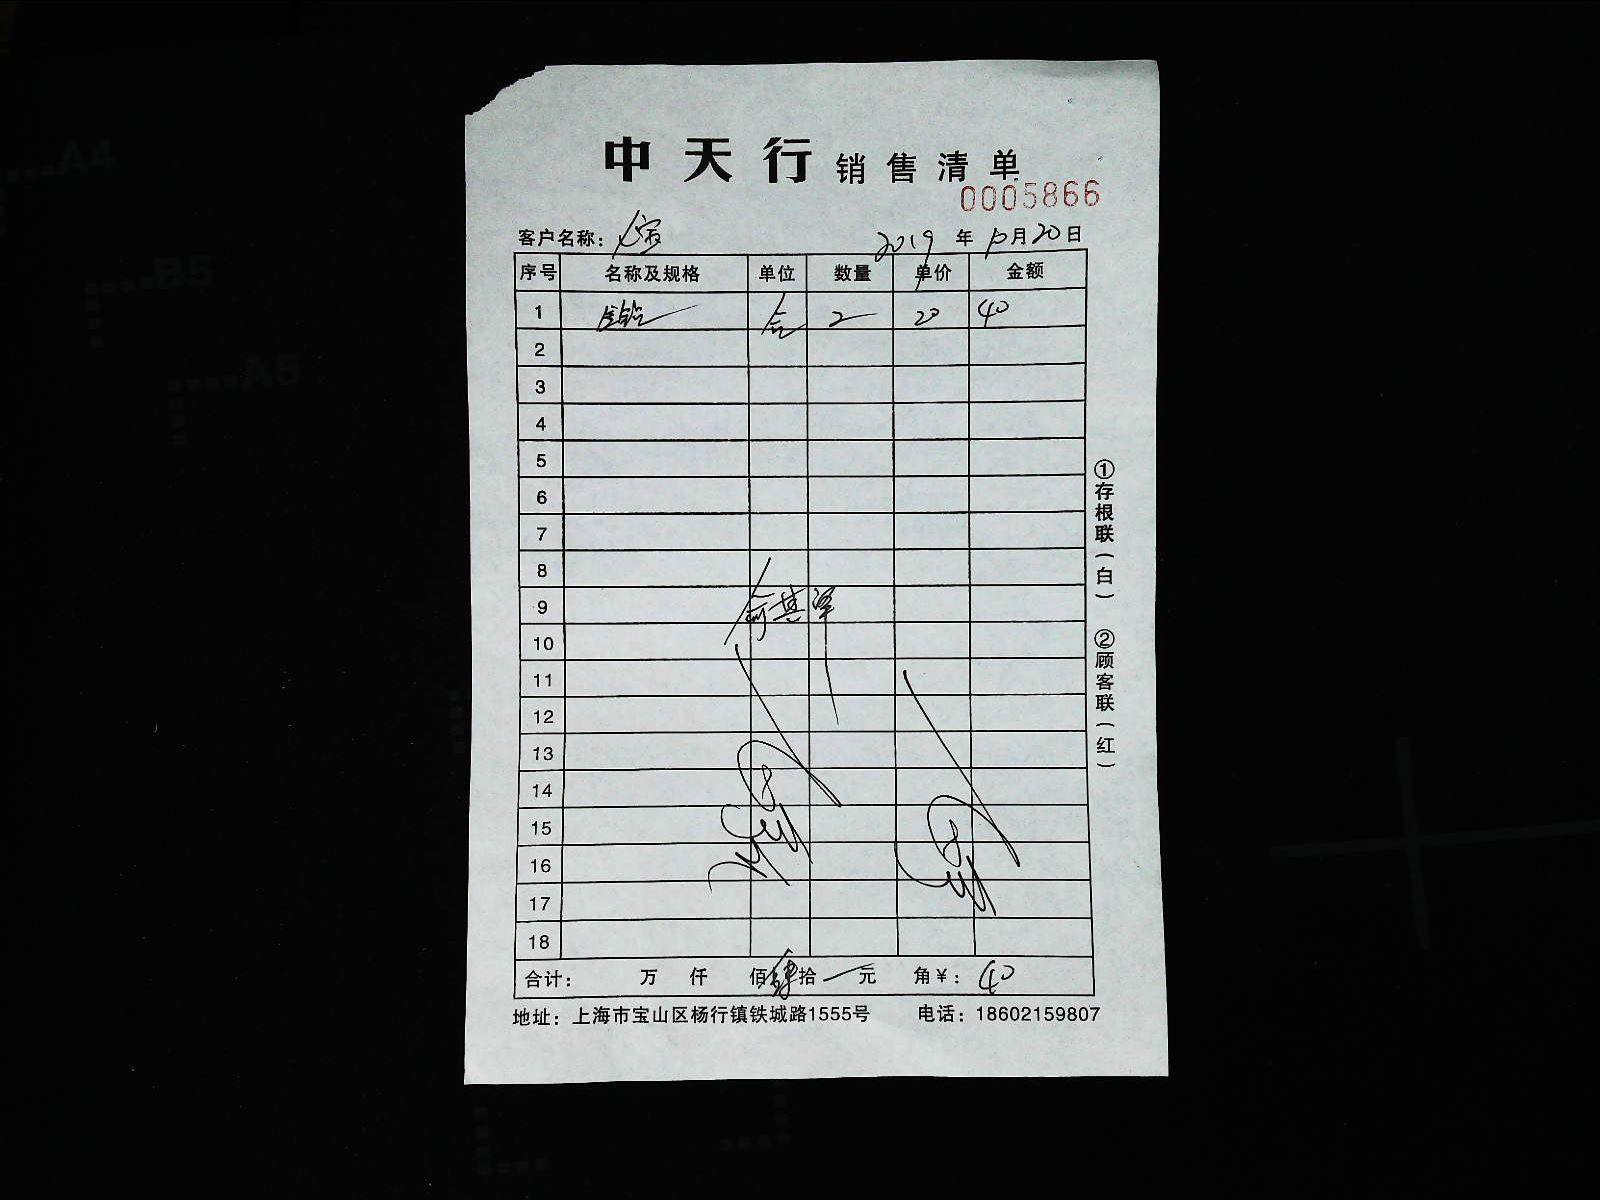 中天行 销售清单
0005866
客户名称： 2019 年 10 月 20 日
序号 名称及规格 单位 数量 单价 金额
1 合 2 20 40
2
3
4
5
6
7
8
9 俞其泽
10
11
12
13
14
15
16
17
18
合计： 万 仟 佰 肆 拾 元 角 ¥： 40
地址：上海市宝山区杨行镇铁城路1555号 电话：18602159807
①存根联（白） ②顾客联（红）